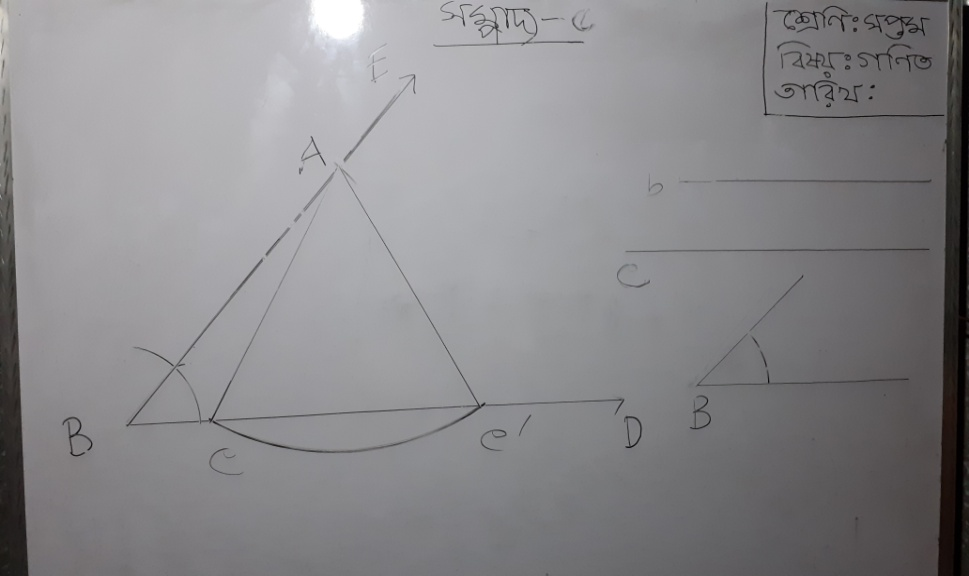 সম্পাদ্য-৫
শ্রেনি: সপ্তম
বিষয়: গনিত
তারিখ:
E
A
b
C
B
B
C
C′
D